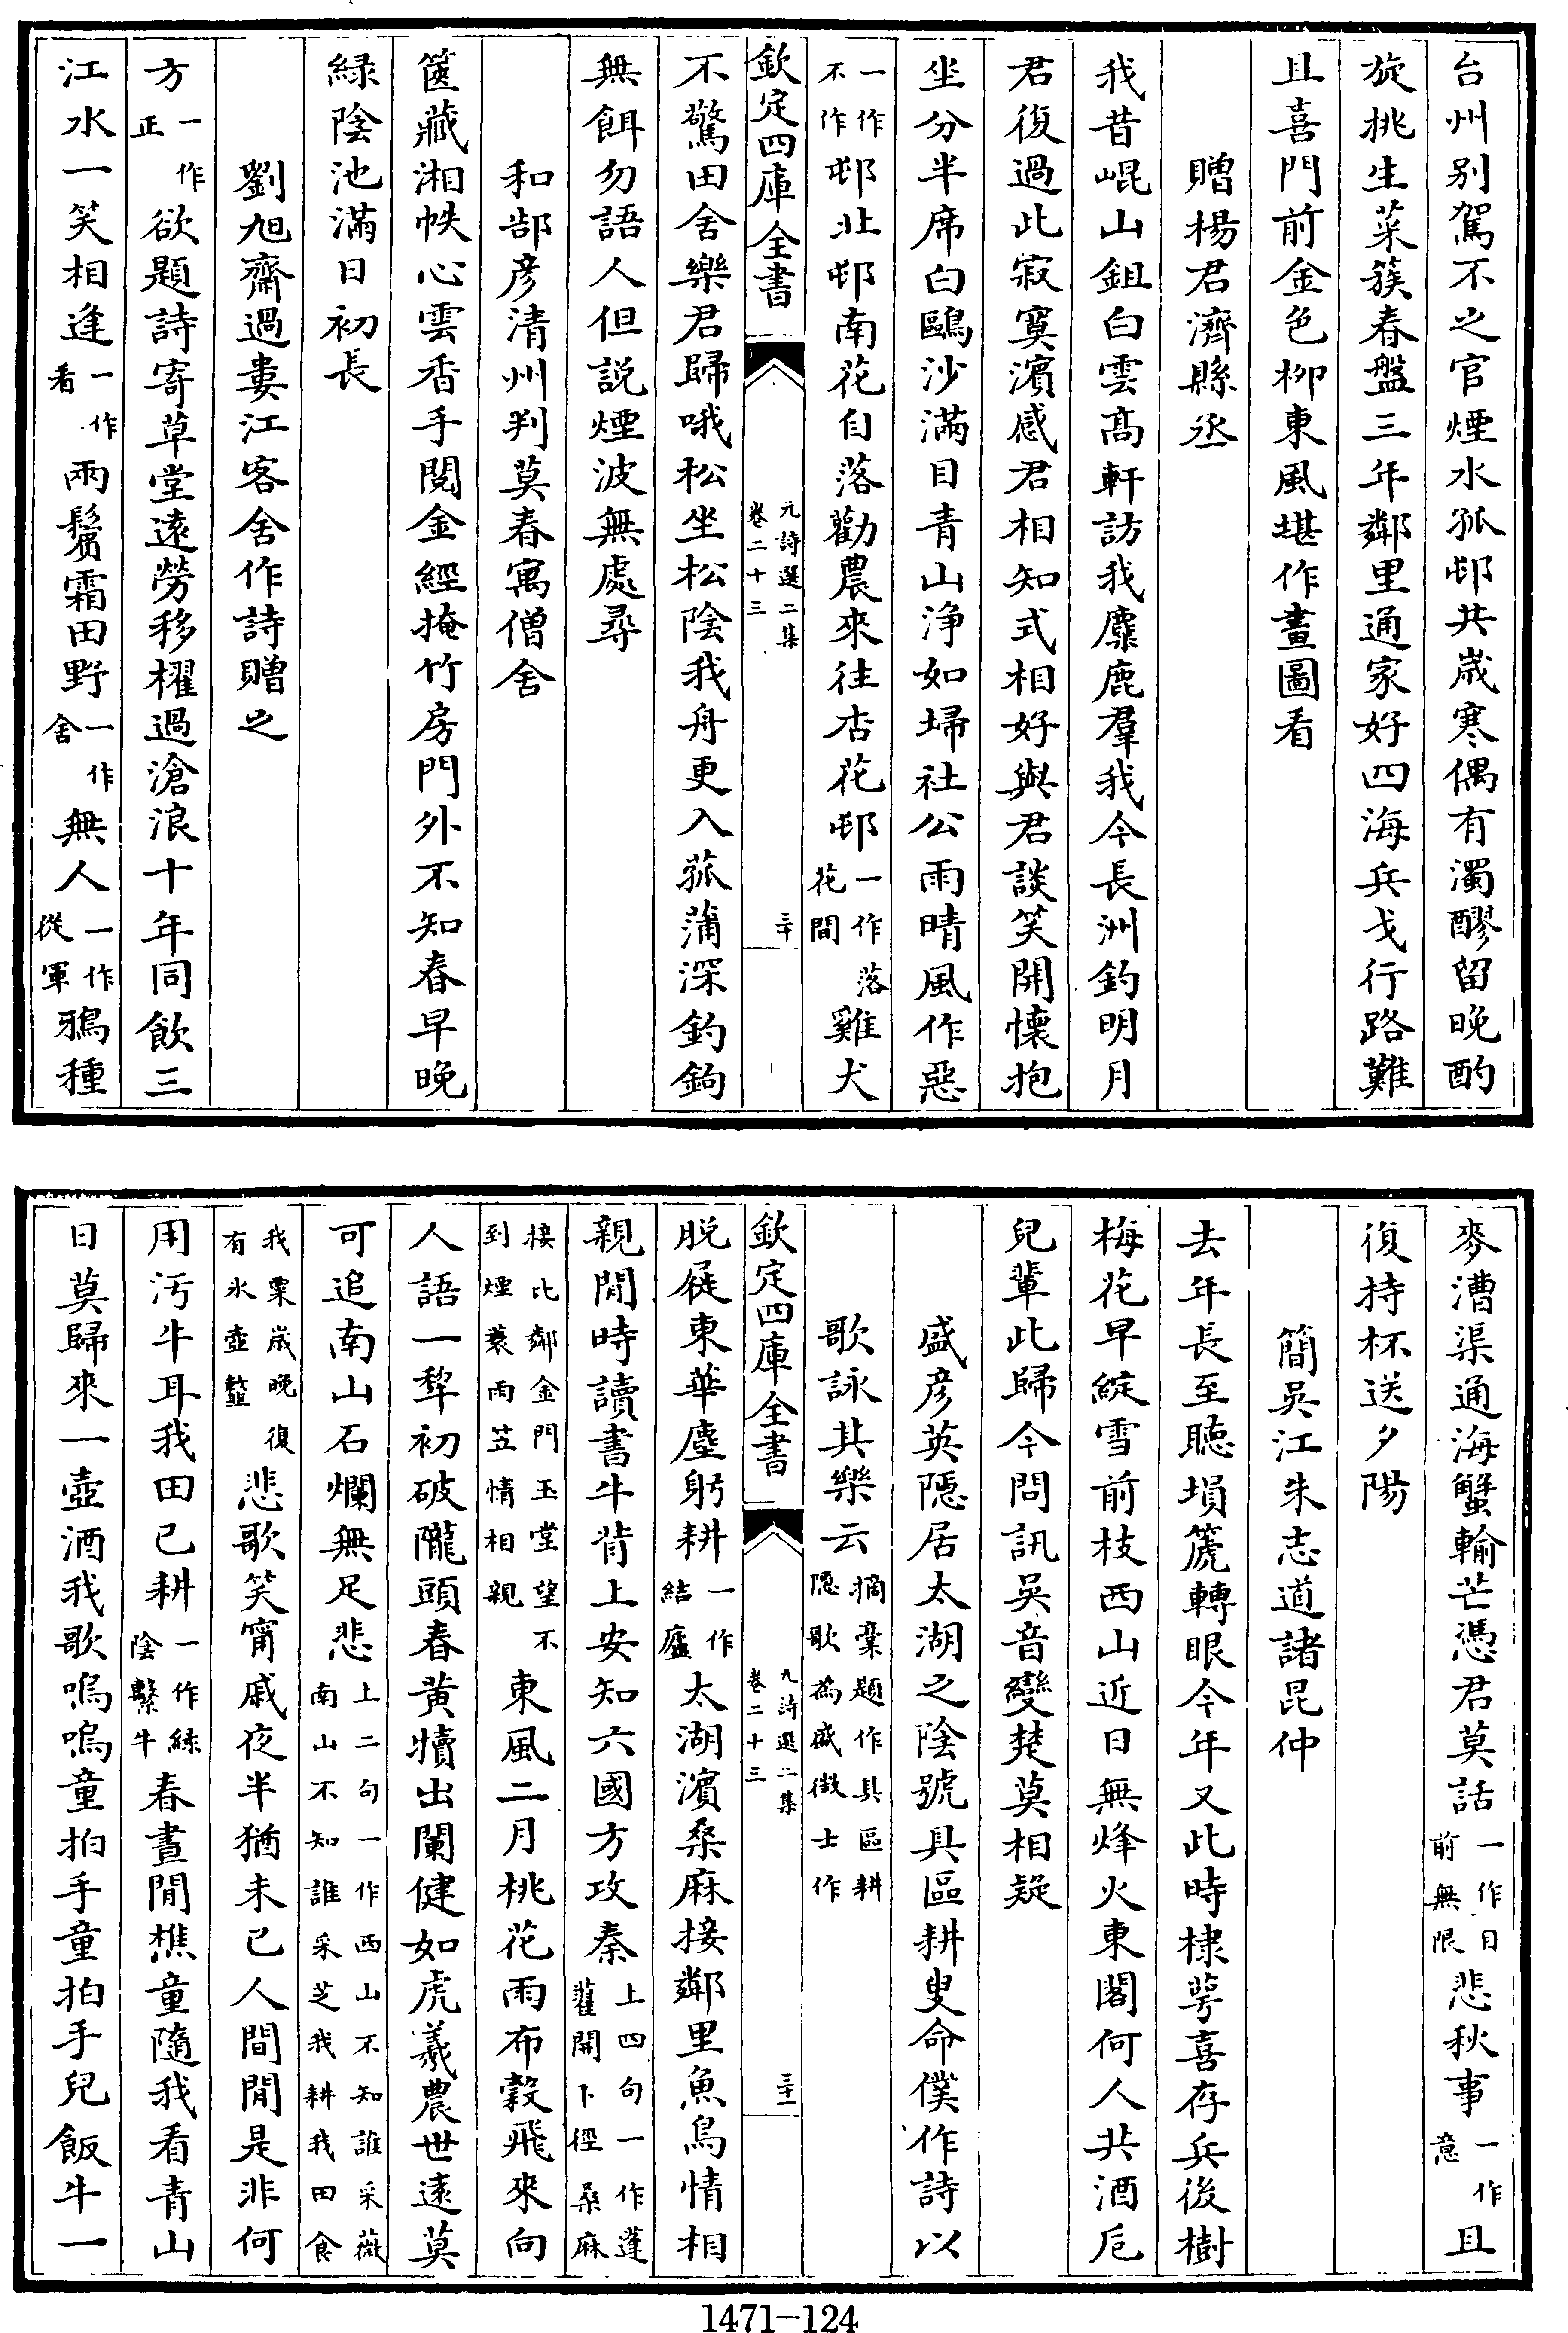 台州别駕不之官煙水孤邨共嵗寒偶有濁醪留晚酌
旋挑生菜簇春盤三年鄰里通家好四海兵戈行路難
且喜門前金色柳東風堪作畫圖看
贈楊君濟縣丞
我昔崐山鉏白雲髙軒訪我麋鹿羣我今長洲釣明月
君復過此寂寞濱感君相知式相好與君談笑開懷抱
坐分半席白鷗沙滿目青山浄如埽社公雨晴風作惡
一作不作邨北邨南花自落勸農來往杏花邨一作落花間雞犬
欽定四庫全書
元詩選二集
卷二十三
三十
不驚田舍樂君歸哦松坐松陰我舟更入菰蒲深釣鉤
無餌勿語人但説煙波無處尋
和郜彦清州判莫春寓僧舍
篋藏湘帙心雲香手閱金經掩竹房門外不知春早晚
緑陰池滿日初長
劉旭齋過婁江客舍作詩贈之
方一作正欲題詩寄草堂遠勞移櫂過滄浪十年同飲三
江水一笑相逢一作看兩鬢霜田野一作舍無人一作從軍鴉種
麥漕渠通海蟹輸芒憑君莫話一作目前無限悲秋事一作意且
復持杯送夕陽
簡吳江朱志道諸昆仲
去年長至聴塤箎轉眼今年又此時棣萼喜存兵後樹
梅花早綻雪前枝西山近日無烽火東閣何人共酒卮
兒輩此歸今問訊吳音變楚莫相疑
盛彦英隱居太湖之陰號具區耕叟命僕作詩以
歌詠其樂云摘稾題作具區耕隱歌為盛徴士作
欽定四庫全書
元詩選二集
卷二十三
三十一
脱屣東華塵躬耕一作結廬太湖濱桑麻接鄰里魚鳥情相
親閒時讀書牛背上安知六國方攻秦上四句一作蓬藋開卜徑桑麻
接比鄰金門玉堂望不到煙蓑雨笠情相親東風二月桃花雨布穀飛來向
人語一犂初破隴頭春黄犢出闌健如虎羲農世遠莫
可追南山石爛無足悲上二句一作西山不知誰采薇南山不知誰采芝我耕我田食
我粟嵗晚復有氷壺虀悲歌笑甯戚夜半猶未已人間閒是非何
用汚牛耳我田已耕一作緑陰繫牛春晝閒樵童隨我看青山
日莫歸來一壺酒我歌嗚嗚童拍手童拍手兒飯牛一
1471-124